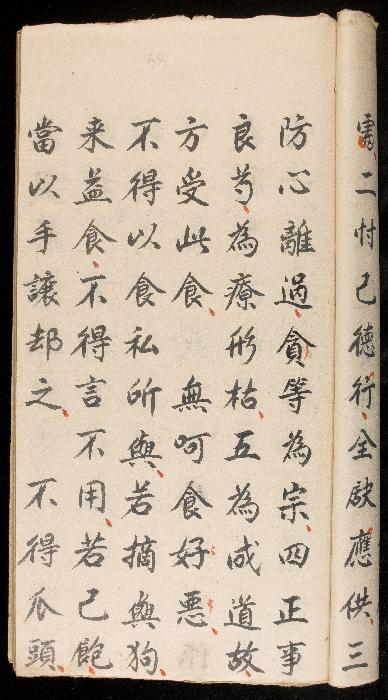 處二忖己德行全缺應供三
防心離過貪等為宗四正事
良芍為療形枯五為成道故
方受此食　無呵食好惡
不得以食私所與若摘與狗
来益食不得言不用若己飽
當以手讓却之　不得爪頭